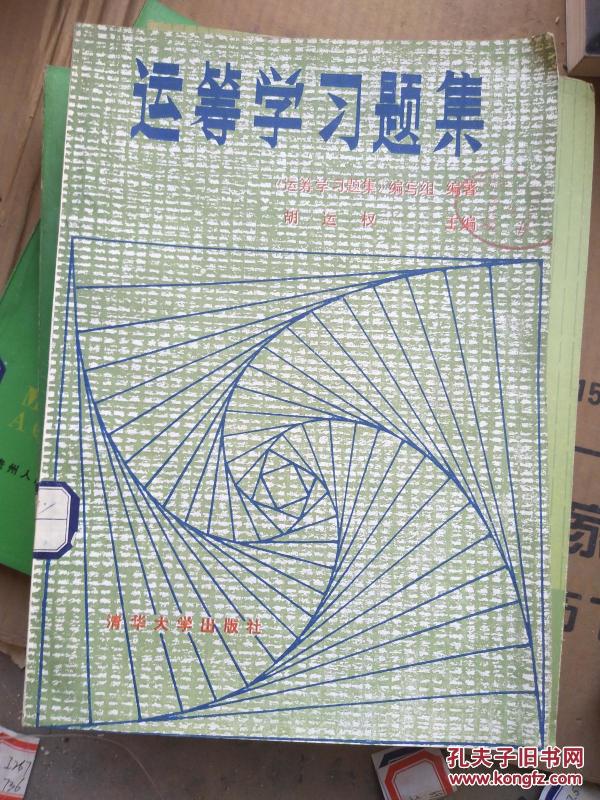 运筹学习题集
《运筹学习题集》编写组 编著
胡运权 主编
清华大学出版社
M
A
州人
15
家
I267
736
7.5
孔夫子旧书网
www.kongfz.com